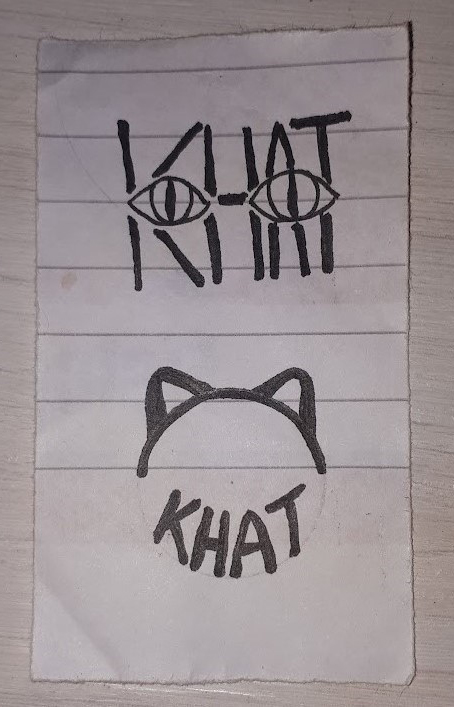 KHAT
KHAT